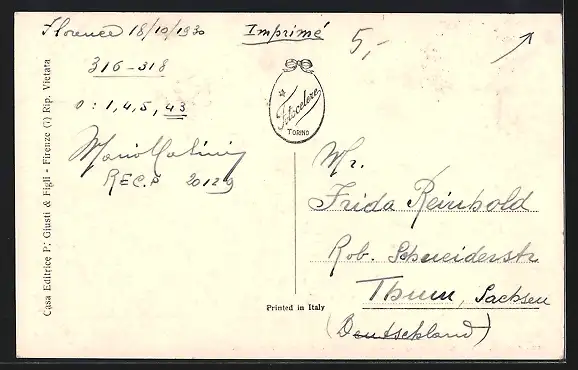 Florence 18/10/1930
Imprimé
5,-
316-318
0 : 1, 4, 5, 43
REC.P 20129
Casa Editrice P. Giusti & Figli - Firenze (i) Rip. Vietata
Fotocelere
TORINO
Mr.
Frida Reinhold
Rob. Schneiderstr
Thum, Sachsen
(Deutschland)
Printed in Italy